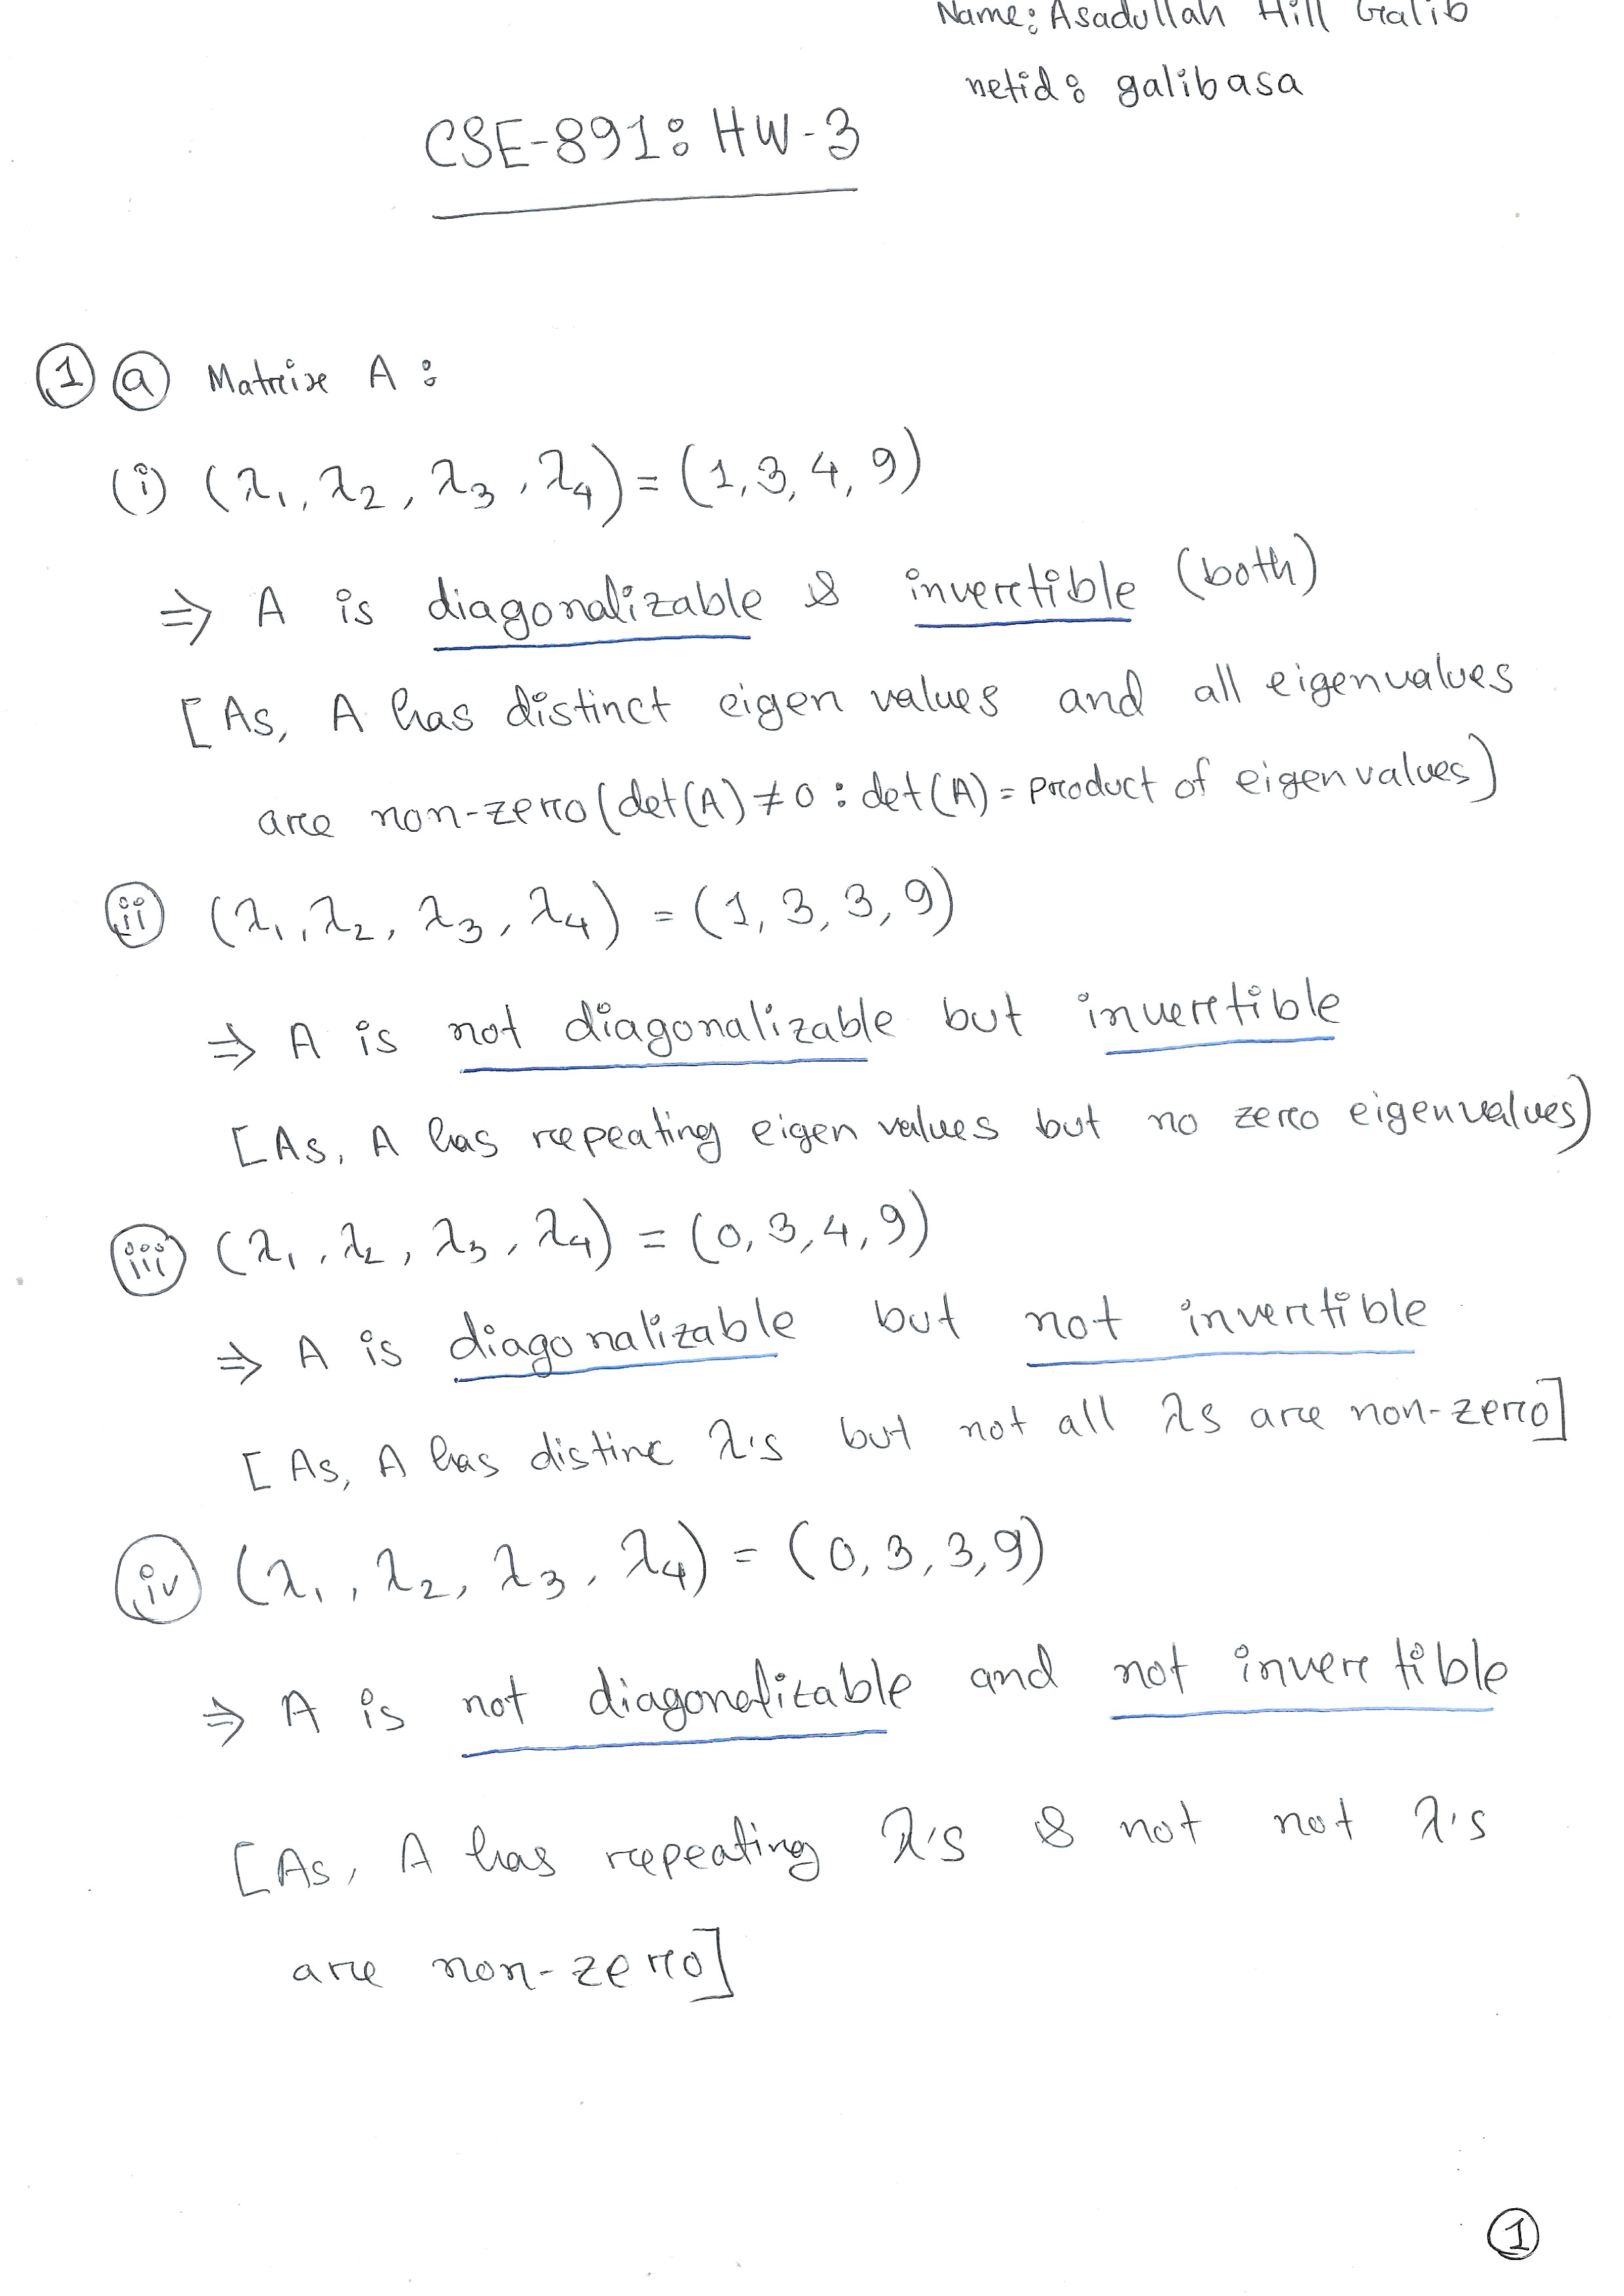 Name: Asadullah Hill Galib
netid: galibasa
CSE-891: HW-3
1 a Matrix A :
(i) (λ₁, λ₂, λ₃, λ₄) = (1, 3, 4, 9)
⇒ A is diagonalizable & invertible (both)
[As, A has distinct eigen values and all eigenvalues
are non-zero (det(A) ≠ 0 : det(A) = product of eigenvalues)
ii (λ₁, λ₂, λ₃, λ₄) = (1, 3, 3, 9)
⇒ A is not diagonalizable but invertible
[As, A has repeating eigen values but no zero eigenvalues)
iii (λ₁, λ₂, λ₃, λ₄) = (0, 3, 4, 9)
⇒ A is diagonalizable but not invertible
[As, A has distinc λ's but not all λs are non-zero]
iv (λ₁, λ₂, λ₃, λ₄) = (0, 3, 3, 9)
⇒ A is not diagonalizable and not invertible
[As, A has repeating λ's & not not λ's
are non-zero]
1